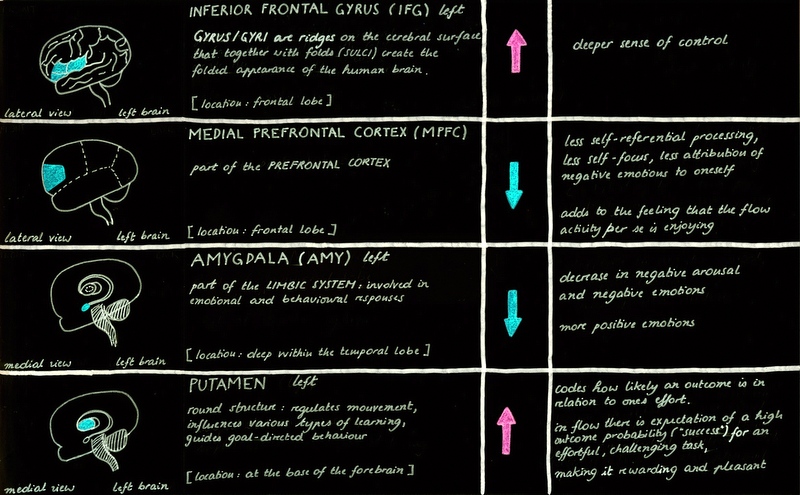 INFERIOR FRONTAL GYRUS (IFG) left
GYRUS/GYRI are ridges on the cerebral surface
that together with folds (SULCI) create the
folded appearance of the human brain.
[location: frontal lobe]
lateral view left brain
deeper sense of control
MEDIAL PREFRONTAL CORTEX (MPFC)
part of the PREFRONTAL CORTEX
[location: frontal lobe]
lateral view left brain
less self-referential processing,
less self-focus, less attribution of
negative emotions to oneself
adds to the feeling that the flow
activity per se is enjoying
AMYGDALA (AMY) left
part of the LIMBIC SYSTEM: involved in
emotional and behavioural respuses
[location: deep within the temporal lobe]
medial view left brain
decrease in negative arousal
and negative emotions
more positive emotions
PUTAMEN left
round structure: regulates mouvement,
influences various types of learning,
guides goal-directed behaviour
[location: at the base of the forebrain]
medial view left brain
codes how likely an outcome is in
relation to one's effort.
in flow there is expectation of a high
outcome probability ("success") for an
effortful, challenging task,
making it rewarding and pleasant